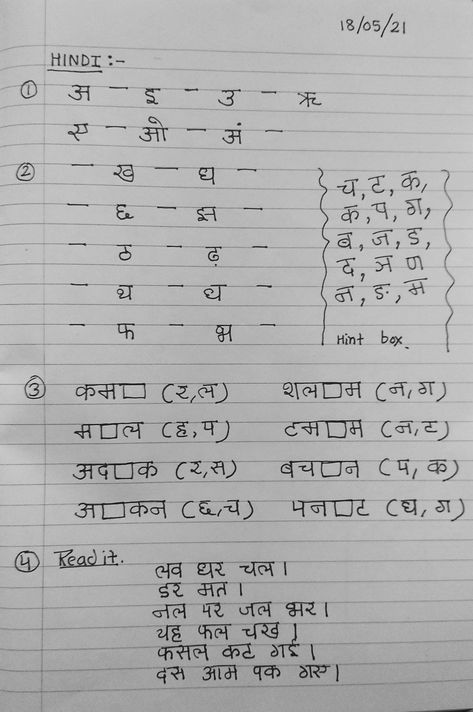 18/05/21
HINDI :-
① अ – इ – उ – ऋ
ए – ओ – अं –
② – ख – घ –
– छ – झ –
– ठ – ढ़ –
– थ – ध –
– फ – भ –
च, ट, क,
क, प, ग,
ब, ज, ड,
द, ञ ण
न, ङ, म
Hint box.
③ कम□ (र,ल) शल□म (न, ग)
म□ल (ह,प) टम□म (न,ट)
अद□क (र,स) बच□न (प, क)
अ□कन (छ,च) पन□ट (घ, ग)
④ Read it.
लव घर चल।
डर मत।
नल पर जल भर।
यह फल चख।
फसल कट गई।
दस आम पक गए।